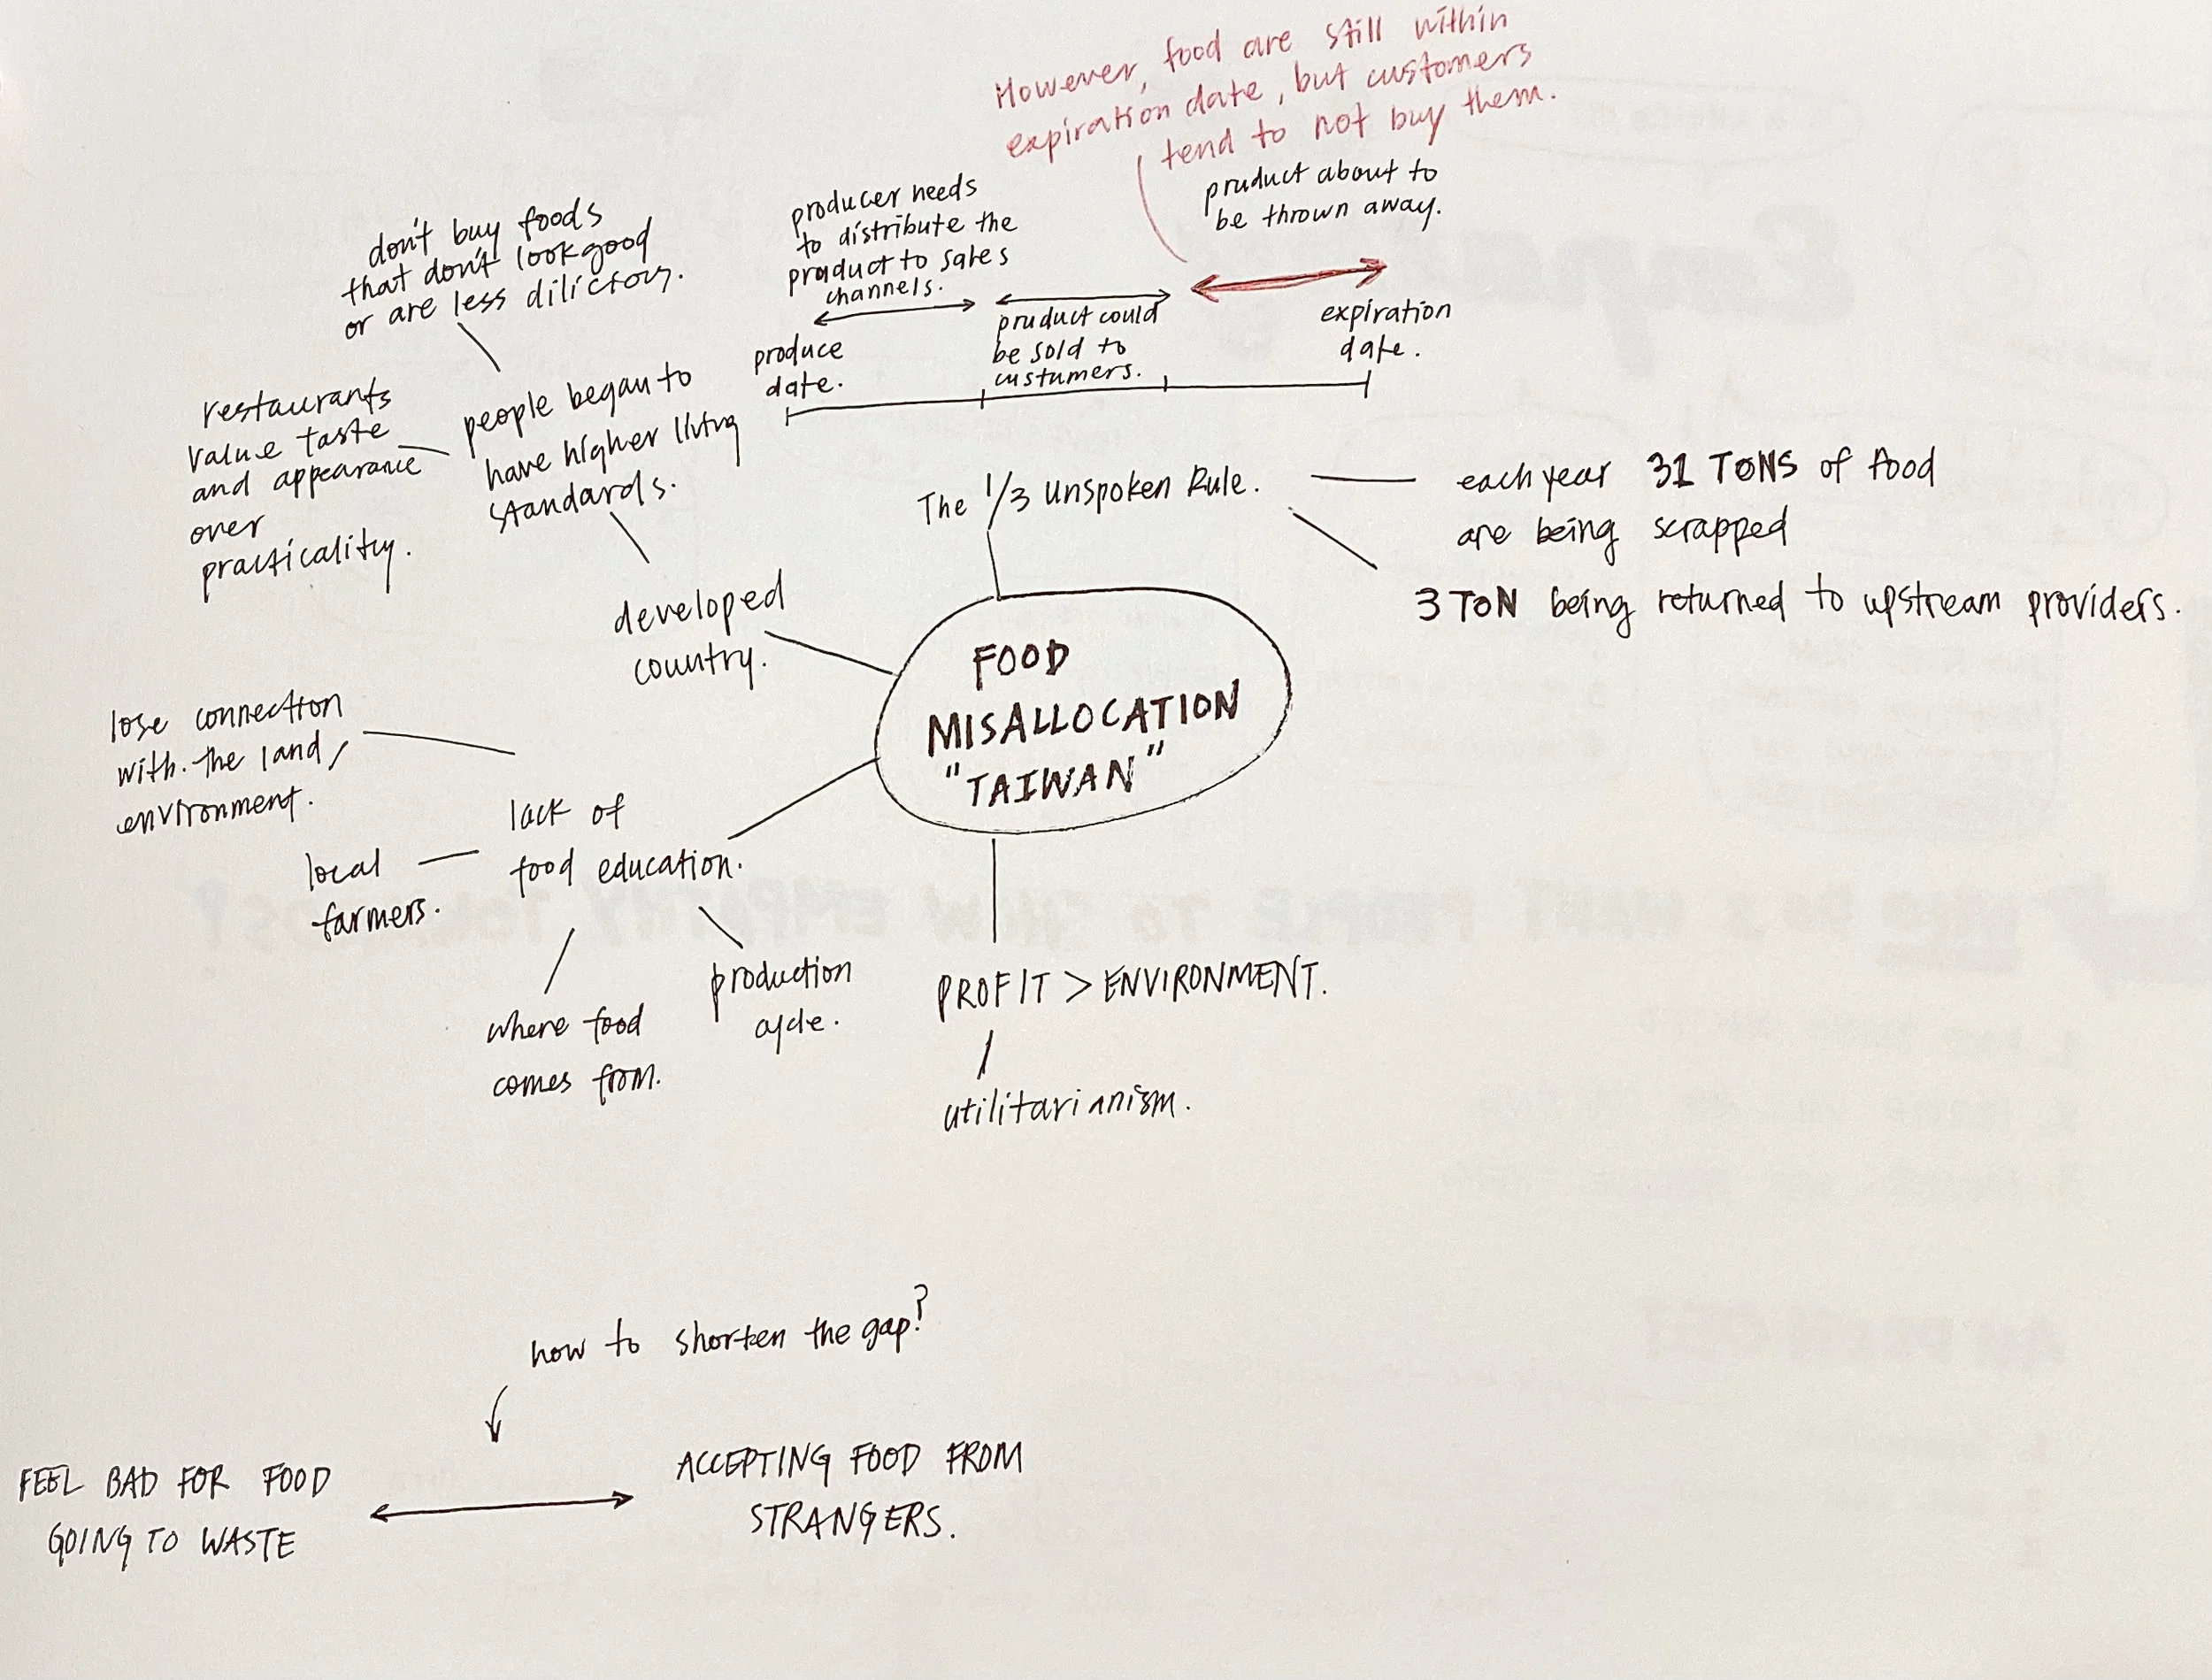 However, food are still within
expiration date, but customers
tend to not buy them.
product about to
be thrown away.
producer needs
to distribute the
product to sales
channels.
don't buy foods
that don't look good
or are less dilictous.
product could
be sold to
custumers.
expiration
date.
produce
date.
restaurants
value taste
and appearance
over
practicality.
people began to
have higher living
standards.
The 1/3 unspoken Rule.
each year 31 TONS of food
are being scrapped
3 TON being returned to upstream providers.
developed
country.
FOOD
MISALLOCATION
"TAIWAN"
lose connection
with the land/
environment.
lack of
food education.
local
farmers.
where food
comes from.
production
cycle.
PROFIT > ENVIRONMENT.
utilitarianism.
how to shorten the gap?
FEEL BAD FOR FOOD
GOING TO WASTE
ACCEPTING FOOD FROM
STRANGERS.